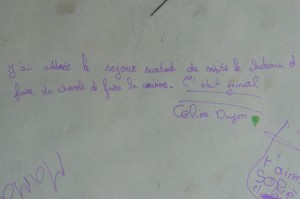 J'ai adorée le sejour surtout de visité le chateau et
faire du cheval et faire la cuisine. C'était génial
Celine Dugon
t'aim
Sofie